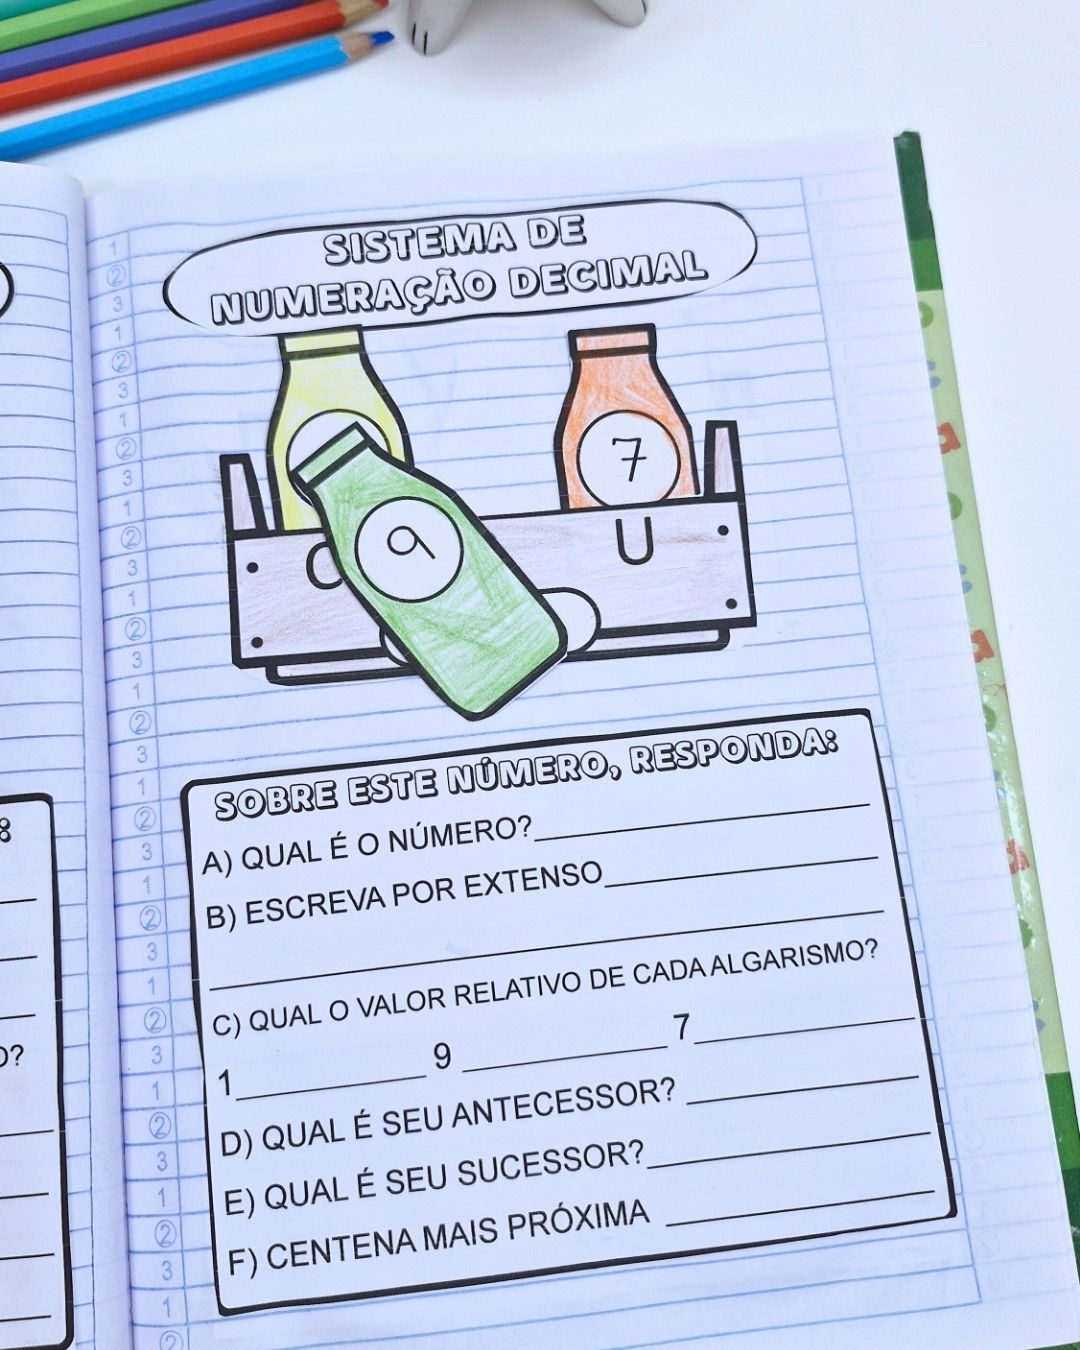 SISTEMA DE
NUMERAÇÃO DECIMAL
7
9
C
U
SOBRE ESTE NÚMERO, RESPONDA:
A) QUAL É O NÚMERO?
B) ESCREVA POR EXTENSO
C) QUAL O VALOR RELATIVO DE CADA ALGARISMO?
1 9 7
D) QUAL É SEU ANTECESSOR?
E) QUAL É SEU SUCESSOR?
F) CENTENA MAIS PRÓXIMA
1
2
3
1
2
3
1
2
3
1
2
3
1
2
3
1
2
3
1
2
3
1
2
3
1
2
3
1
2
3
1
2
3
1
2
3
1
2
O?